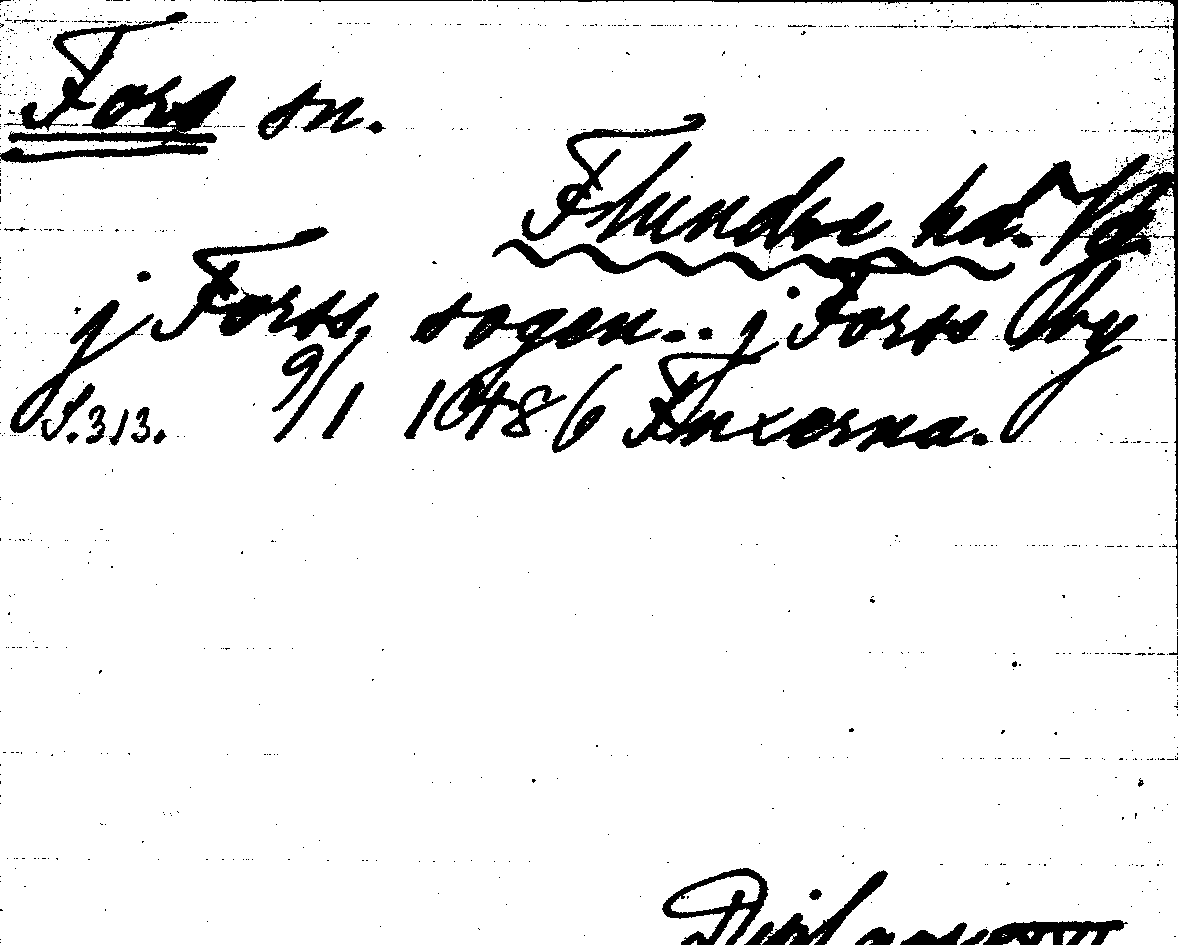 Fors sn.
Flundre hd. Vg.
j Forss sogen.. j Forss by
S. 313. 9/1 1486 Fuxerna.